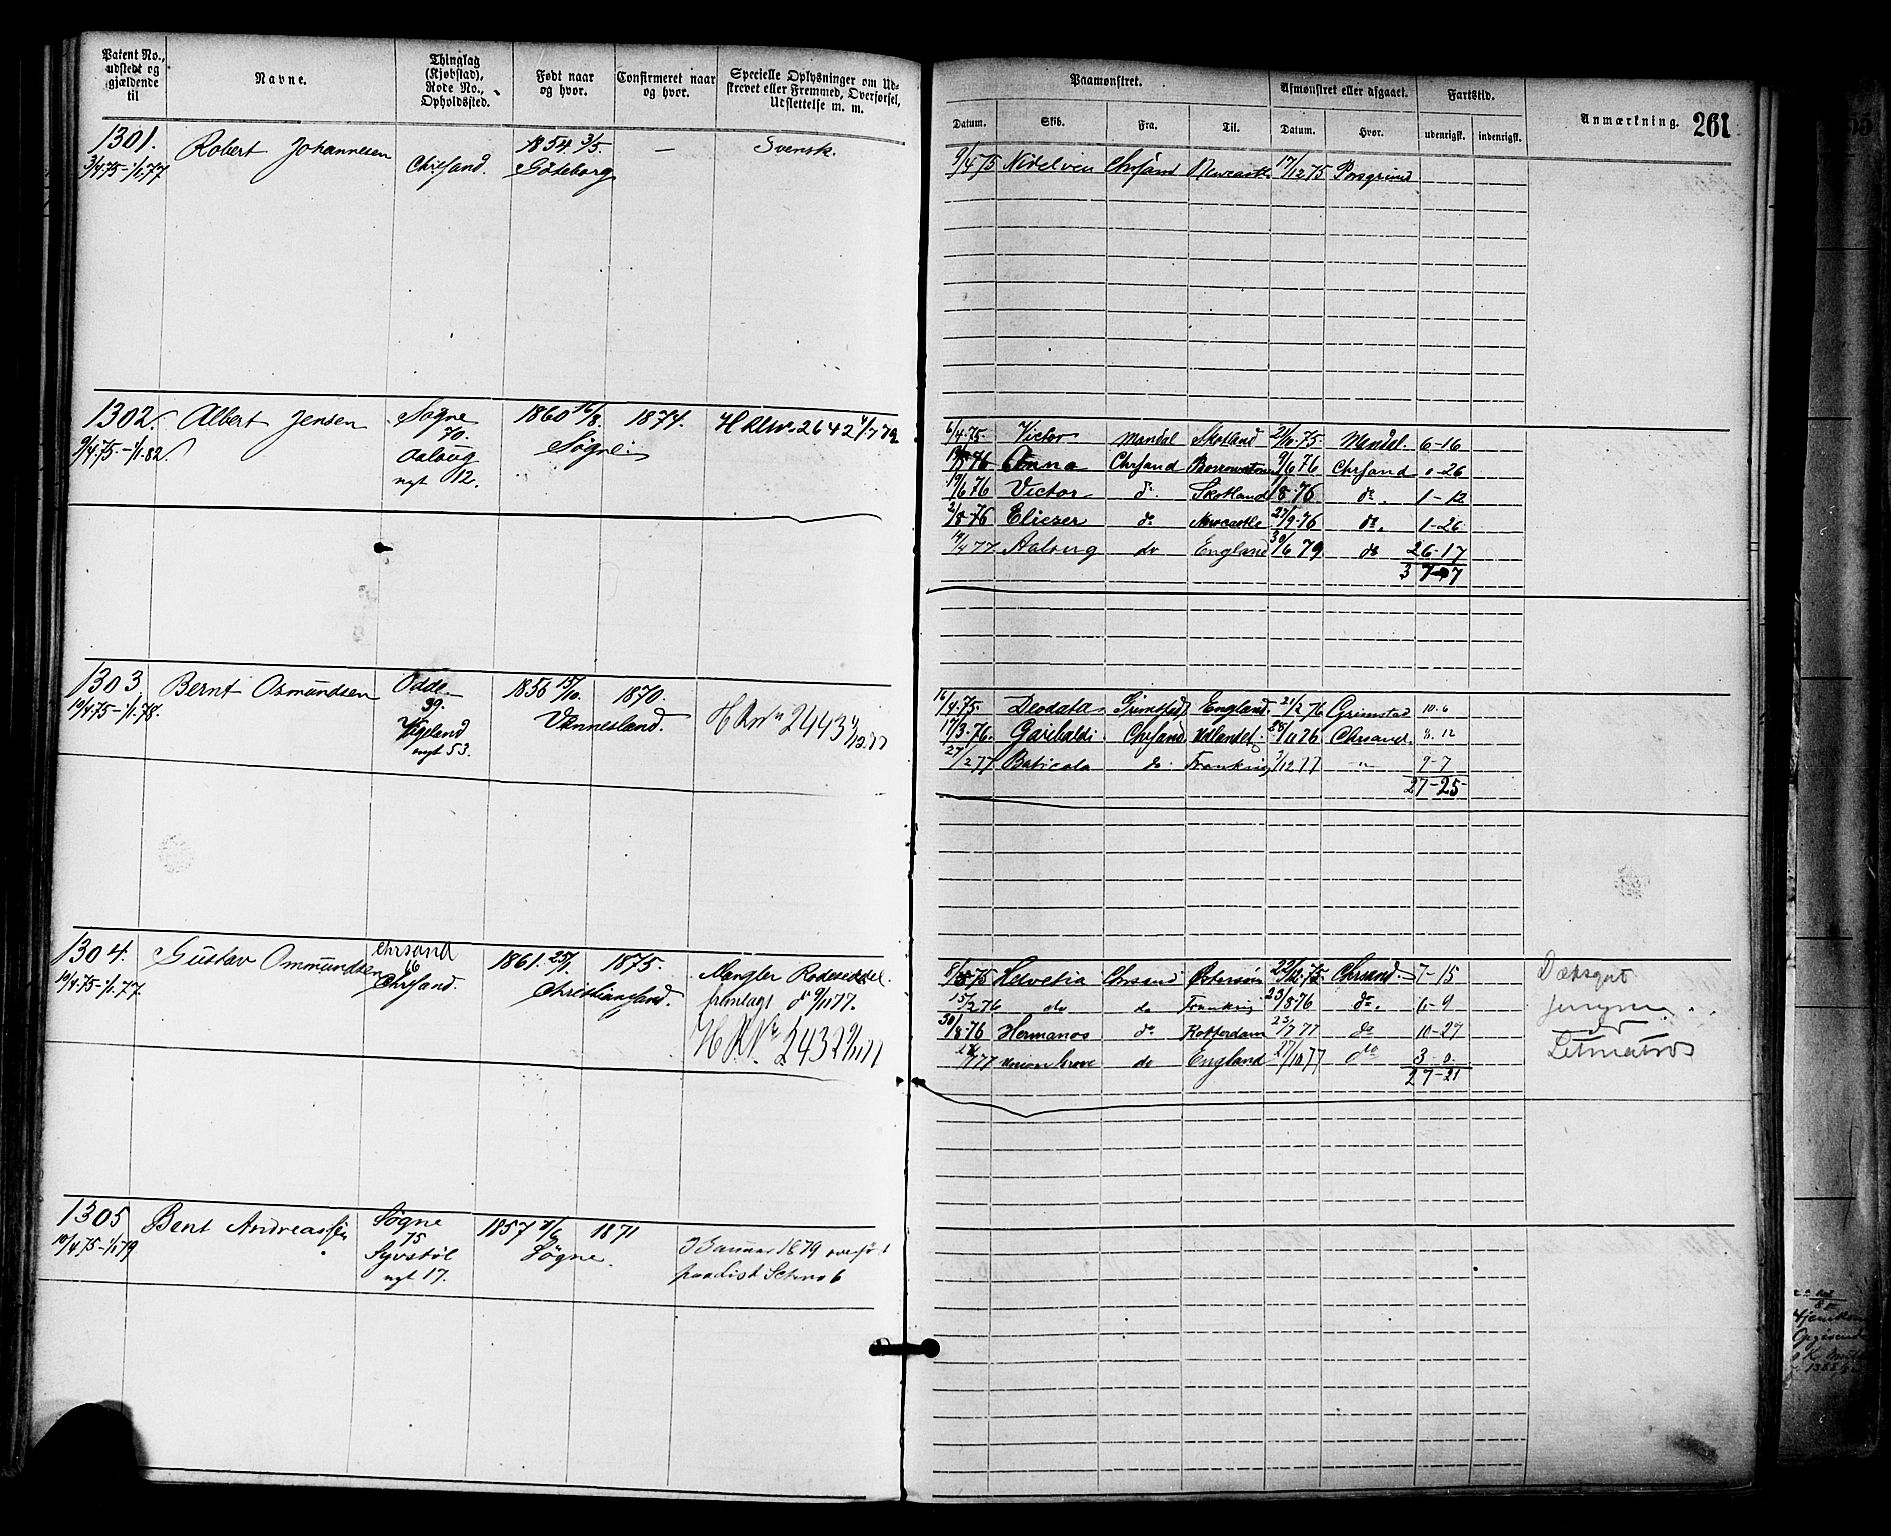 Patent No., udstedt og gjældende til
Navne.
Thinglag (Kjøbstad), Rode No., Opholdssted.
Født naar og hvor.
Confirmeret naar og hvor.
Specielle Oplysninger om Udskrevet eller Fremmed, Overførsel, Udslettelse m. m.
Paamønstret.
Afmønstret eller afgaaet.
Fartstid.
Anmærkning.
261
Datum. Skib. Fra. Til. Datum. Hvor. udenrigsk. indenrigsk.
1301. Robert Johannesen Chrisand. 1854 3/5. — Svensk.
3/4.75-1/1.77 Göteborg
9/4 75 Nidelven Chrsand Newcastle 17/12 75 Porsgrund
1302. Albert Jensen Søgne 1860 16/8. 1874.
9/4.75.-1/1.82 70. Søgne
Aalaug
nyt 12.
6/4.75. Victor Mandal Skotland 75 Mandal. 6-16
Anna Chrsand 9/6 76 Chrsand 1-26
19/6 76 Victor do. Skotland 1/8.76 do. 1-12
2/8.76 Eliezer do Newcastle 27/9.76 do. 1-26
77 Aalaug do England 30/6 79. do 26-17
37-7
1303. Bernt Osmundsen Odde 1856 15/10. 1870.
10/4.75-1/1.78. 39. Vennesland.
Vigeland
nyt 53.
2443
16/4.75. Deodata Grimstad England. 21/2 76 Grimstad 10.6
17/3.76. Garibaldi Chrsand Udlandet 28/11 76 Chrsand. 8.12
27/2 77 Baticola do Frankrig /12 77 -"- 9-7
27-25
1304. Gustav Ommundsen Chrsand 1861. 25/1. 1875. Mangler Rodeseddel.
10/4.75-1/1.77. 66 Christianssand. fremlagt d 9/11 77.
Chrsand.
2432
75 Helvetia Chrsand Østersøen 22/12.75. Chrsand. 7-15
15/2 76 do do Frankrig 23/8.76 do. 6-9 Jungm.
30/8.76 Hermanos do Rotterdam 23/7 77 do 10-27
77 Union Grove do England 17/10 77 do 3 0. Letmatros
27-21
1305 Bent Andreassen Søgne 1857 8/6 1871
10/4.75-1/1 79 75 Søgne.
nyt 17.
Januar 1879 overført